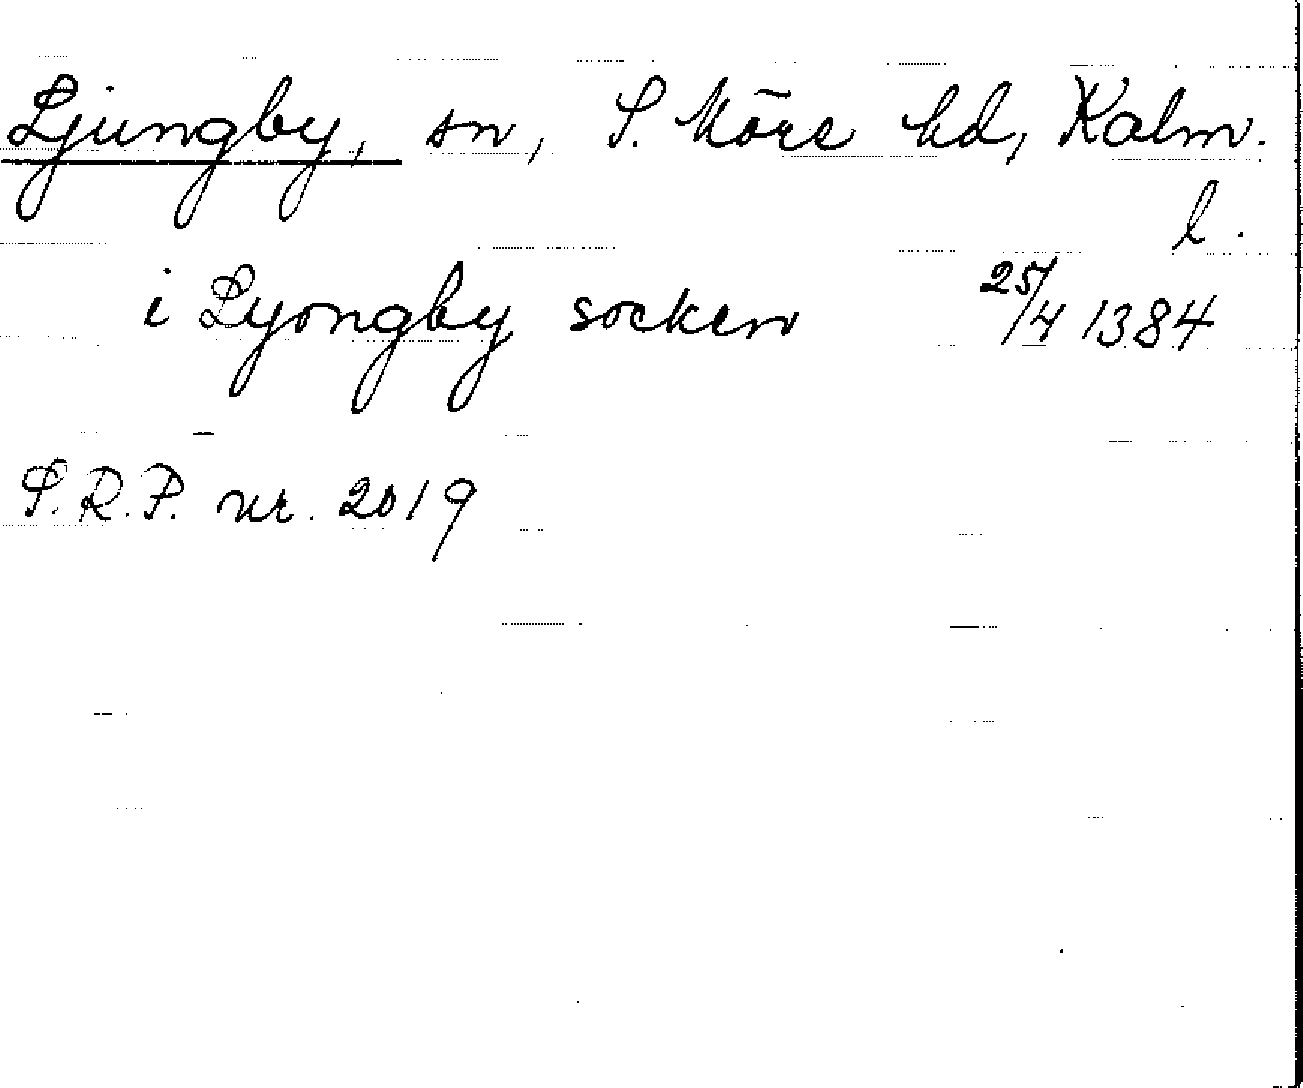 Ljungby, sn, S. Möre hd, Kalm.
l.
i Lyongby socken 25/4 1384
S.R.P. nr. 2019